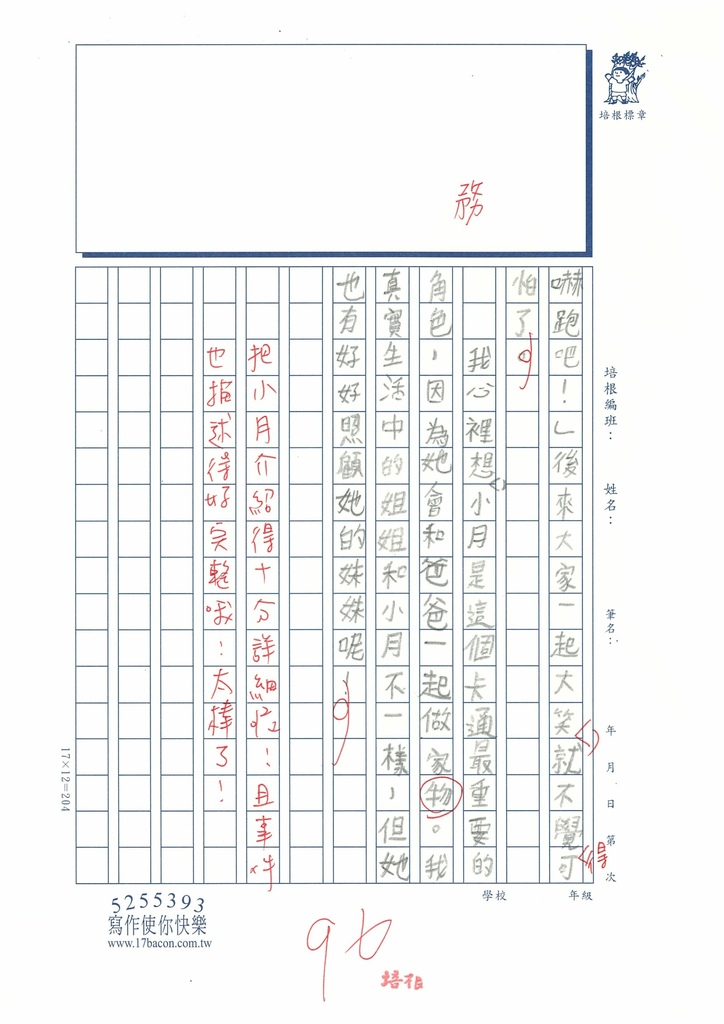 培根標章
務
嚇跑吧！」後來大家一起大笑就不覺可
得
怕了。
我心裡想小月是這個卡通最重要的
角色，因為她會和爸爸一起做家物。我
真實生活中的姐姐和小月不一樣，但她
也有好好照顧她的妹妹呢！
把小月介紹得十分詳細呢！且事件
也描述得好完整哦！太棒了！
培根編班：
姓名：
筆名：
年 月 日 第 次
學校
年級
17×12=204
5255393
寫作使你快樂
www.17bacon.com.tw
96
培根